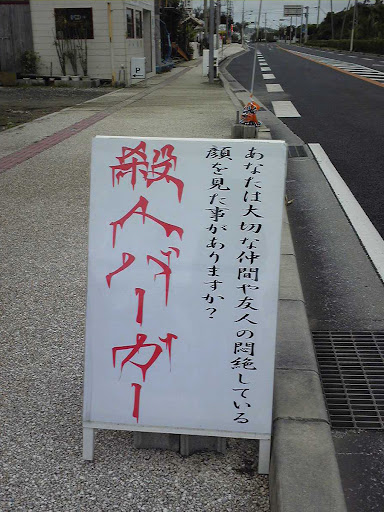 あなたは大切な仲間や友人の悶絶している
顔を見た事がありますか?
殺人バーガー